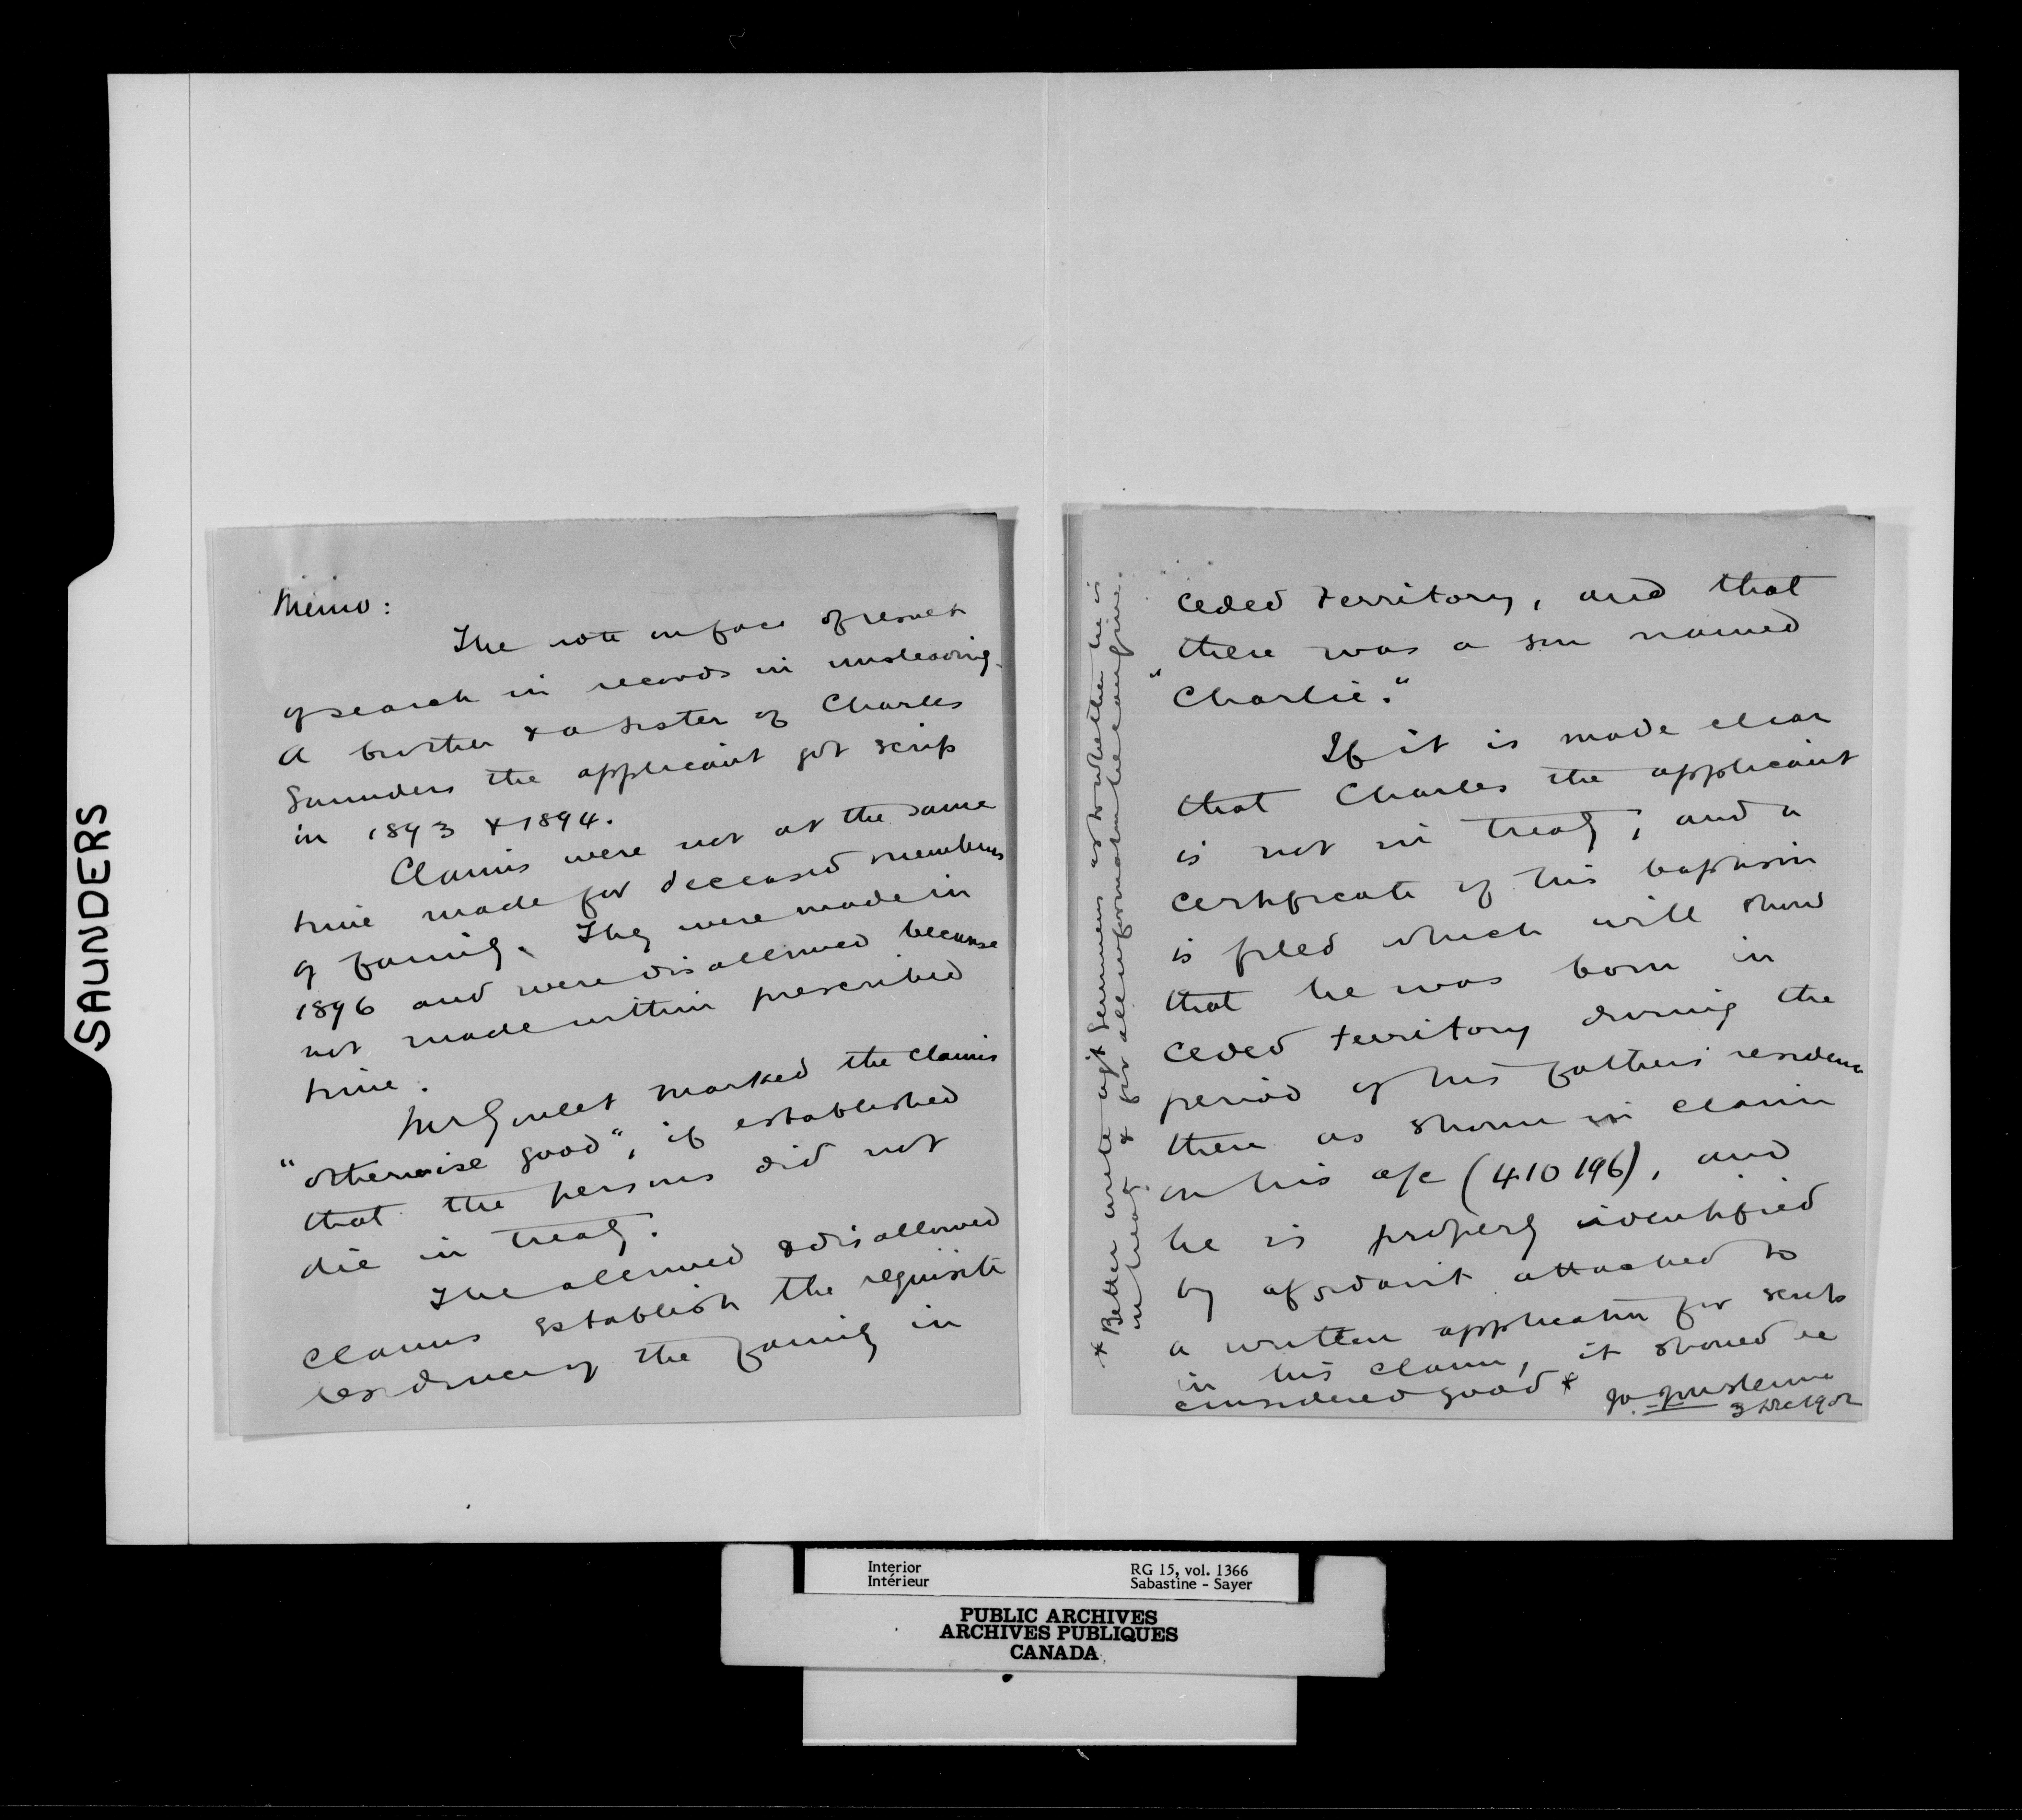 SAUNDERS
Memo:
The note on face of result
of search in records is misleading.
A brother & a sister of Charles
Saunders the applicant got scrip
in 1893 & 1894.
Claims were not at the same
time made for deceased members
of family. They were made in
1896 and were disallowed because
not made within prescribed
time.
Mr Goulet marked the claims
"otherwise good", if established
that the persons did not
die in treaty.
The allowed & disallowed
claims establish the requisite
residence of the family in
ceded territory, and that
there was a son named
"Charlie."
If it is made clear
that Charles the applicant
is not in treaty; and a
certificate of his baptism
is filed which will show
that he was born in
ceded territory during the
period of his fathers residence
there as shown in claim
on his a/c (410196), and
he is properly identified
by affidavit attached to
a written application for scrip
in his claim, it should be
considered good *
3 Dec 1902
* Better write agt Semmens as to whether he is
in treaty & for all information he can give.
Interior
Intérieur
RG 15, vol. 1366
Sabastine - Sayer
PUBLIC ARCHIVES
ARCHIVES PUBLIQUES
CANADA